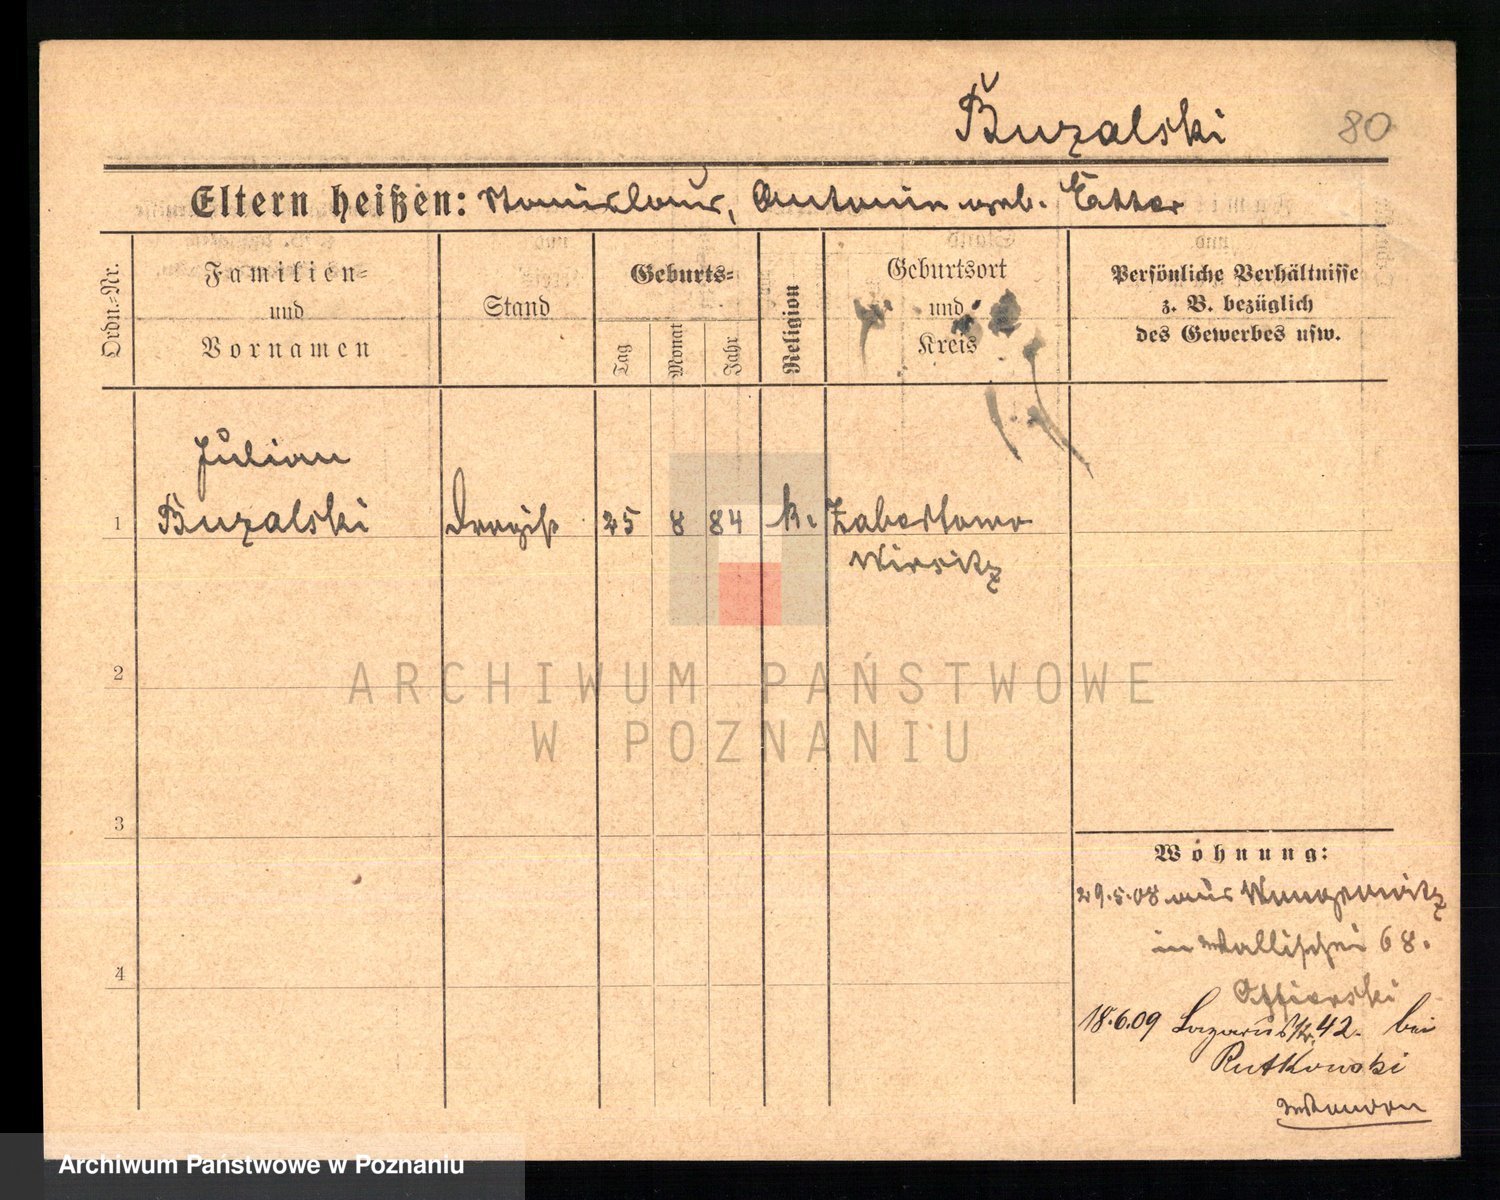 Buzalski
80
Eltern heißen: Stanislaus, Antonie geb. Etter
Ordn.-Nr.
Familien-
und
Vornamen
Stand
Geburts-
Tag
Monat
Jahr
Religion
Geburtsort
und
Kreis
Persönliche Verhältnisse
z. B. bezüglich
des Gewerbes usw.
Julian
1 Buzalski Drogist 25 8 84 k. Zabartowo
Wirsitz
2
3
4
Wohnung:
29.5.08 aus
in Wallischei 68.
18.6.09 Lazarusstr. 42. bei
Rutkowski
ARCHIWUM PAŃSTWOWE
W POZNANIU
Archiwum Państwowe w Poznaniu